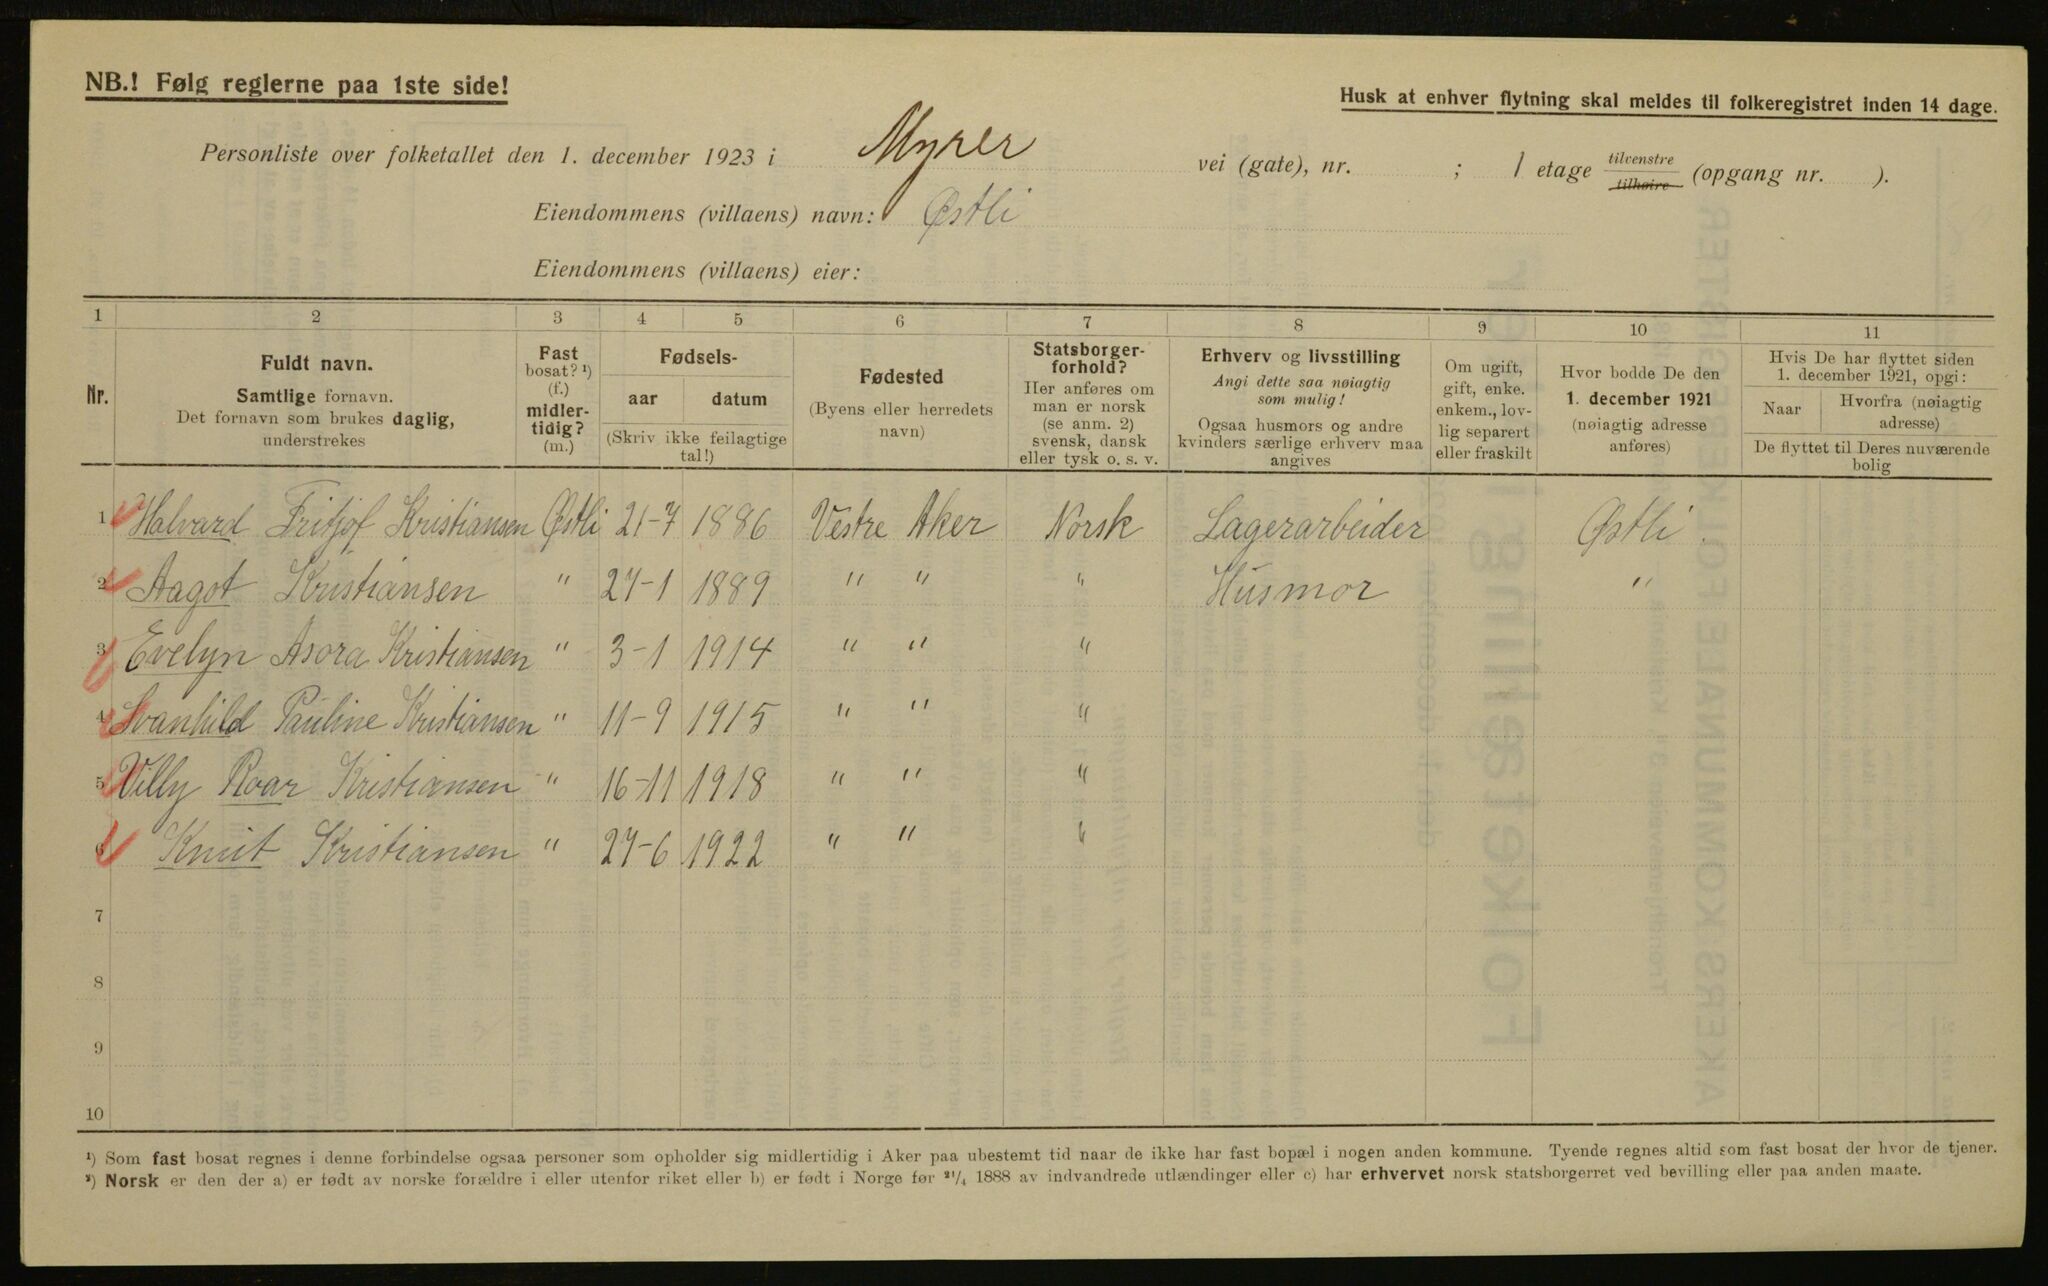 NB.! Følg reglerne paa 1ste side!
Husk at enhver flytning skal meldes til folkeregistret inden 14 dage.
Personliste over folketallet den 1. december 1923 i Myrer vei (gate), nr. ; 1 etage tilvenstre tilhøire (opgang nr. ).
Eiendommens (villaens) navn: Østli
Eiendommens (villaens) eier:
1 2 3 4 5 6 7 8 9 10 11
Nr.
Fuldt navn.
Samtlige fornavn.
Det fornavn som brukes daglig,
understrekes
Fast
bosat? ¹)
(f.)
midler-
tidig?
(m.)
Fødsels-
aar datum
(Skriv ikke feilagtige
tal!)
Fødested
(Byens eller herredets
navn)
Statsborger-
forhold?
Her anføres om
man er norsk
(se anm. 2)
svensk, dansk
eller tysk o. s. v.
Erhverv og livsstilling
Angi dette saa nøiagtig
som mulig!
Ogsaa husmors og andre
kvinders særlige erhverv maa
angives
Om ugift,
gift, enke.
enkem., lov-
lig separert
eller fraskilt
Hvor bodde De den
1. december 1921
(nøiagtig adresse
anføres)
Hvis De har flyttet siden
1. december 1921, opgi:
Naar
Hvorfra (nøiagtig
adresse)
De flyttet til Deres nuværende
bolig
1 Halvard Fritjof Kristiansen Østli 21-7 1886 Vestre Aker Norsk Lagerarbeider Østli.
2 Aagot Kristiansen " 27-1 1889 " " " Husmor "
3 Evelyn Asora Kristiansen " 3-1 1914 " " "
4 Svanhild Pauline Kristiansen " 11-9 1915 " " "
5 Villy Roar Kristiansen " 16-11 1918 " " "
6 Knut Kristiansen " 27-6 1922 " " "
7
8
9
10
¹) Som fast bosat regnes i denne forbindelse ogsaa personer som opholder sig midlertidig i Aker paa ubestemt tid naar de ikke har fast bopæl i nogen anden kommune. Tyende regnes altid som fast bosat der hvor de tjener.
²) Norsk er den der a) er født av norske forældre i eller utenfor riket eller b) er født i Norge før ²¹/₄ 1888 av indvandrede utlændinger eller c) har erhvervet norsk statsborgerret ved bevilling eller paa anden maate.